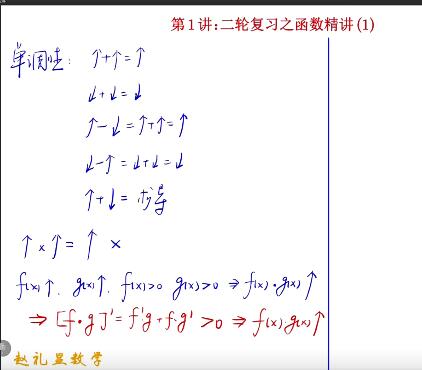 第1讲:二轮复习之函数精讲(1)
单调性: ↑+↑=↑
↓+↓=↓
↑-↓=↑+↑=↑
↓-↑=↓+↓=↓
↑+↓=求导
↑×↑=↑ ×
f(x)↑, g(x)↑, f(x)>0 g(x)>0 ⇒ f(x)·g(x)↑
⇒ [f·g]'=f'g+f·g'>0 ⇒ f(x)·g(x)↑
赵礼显数学